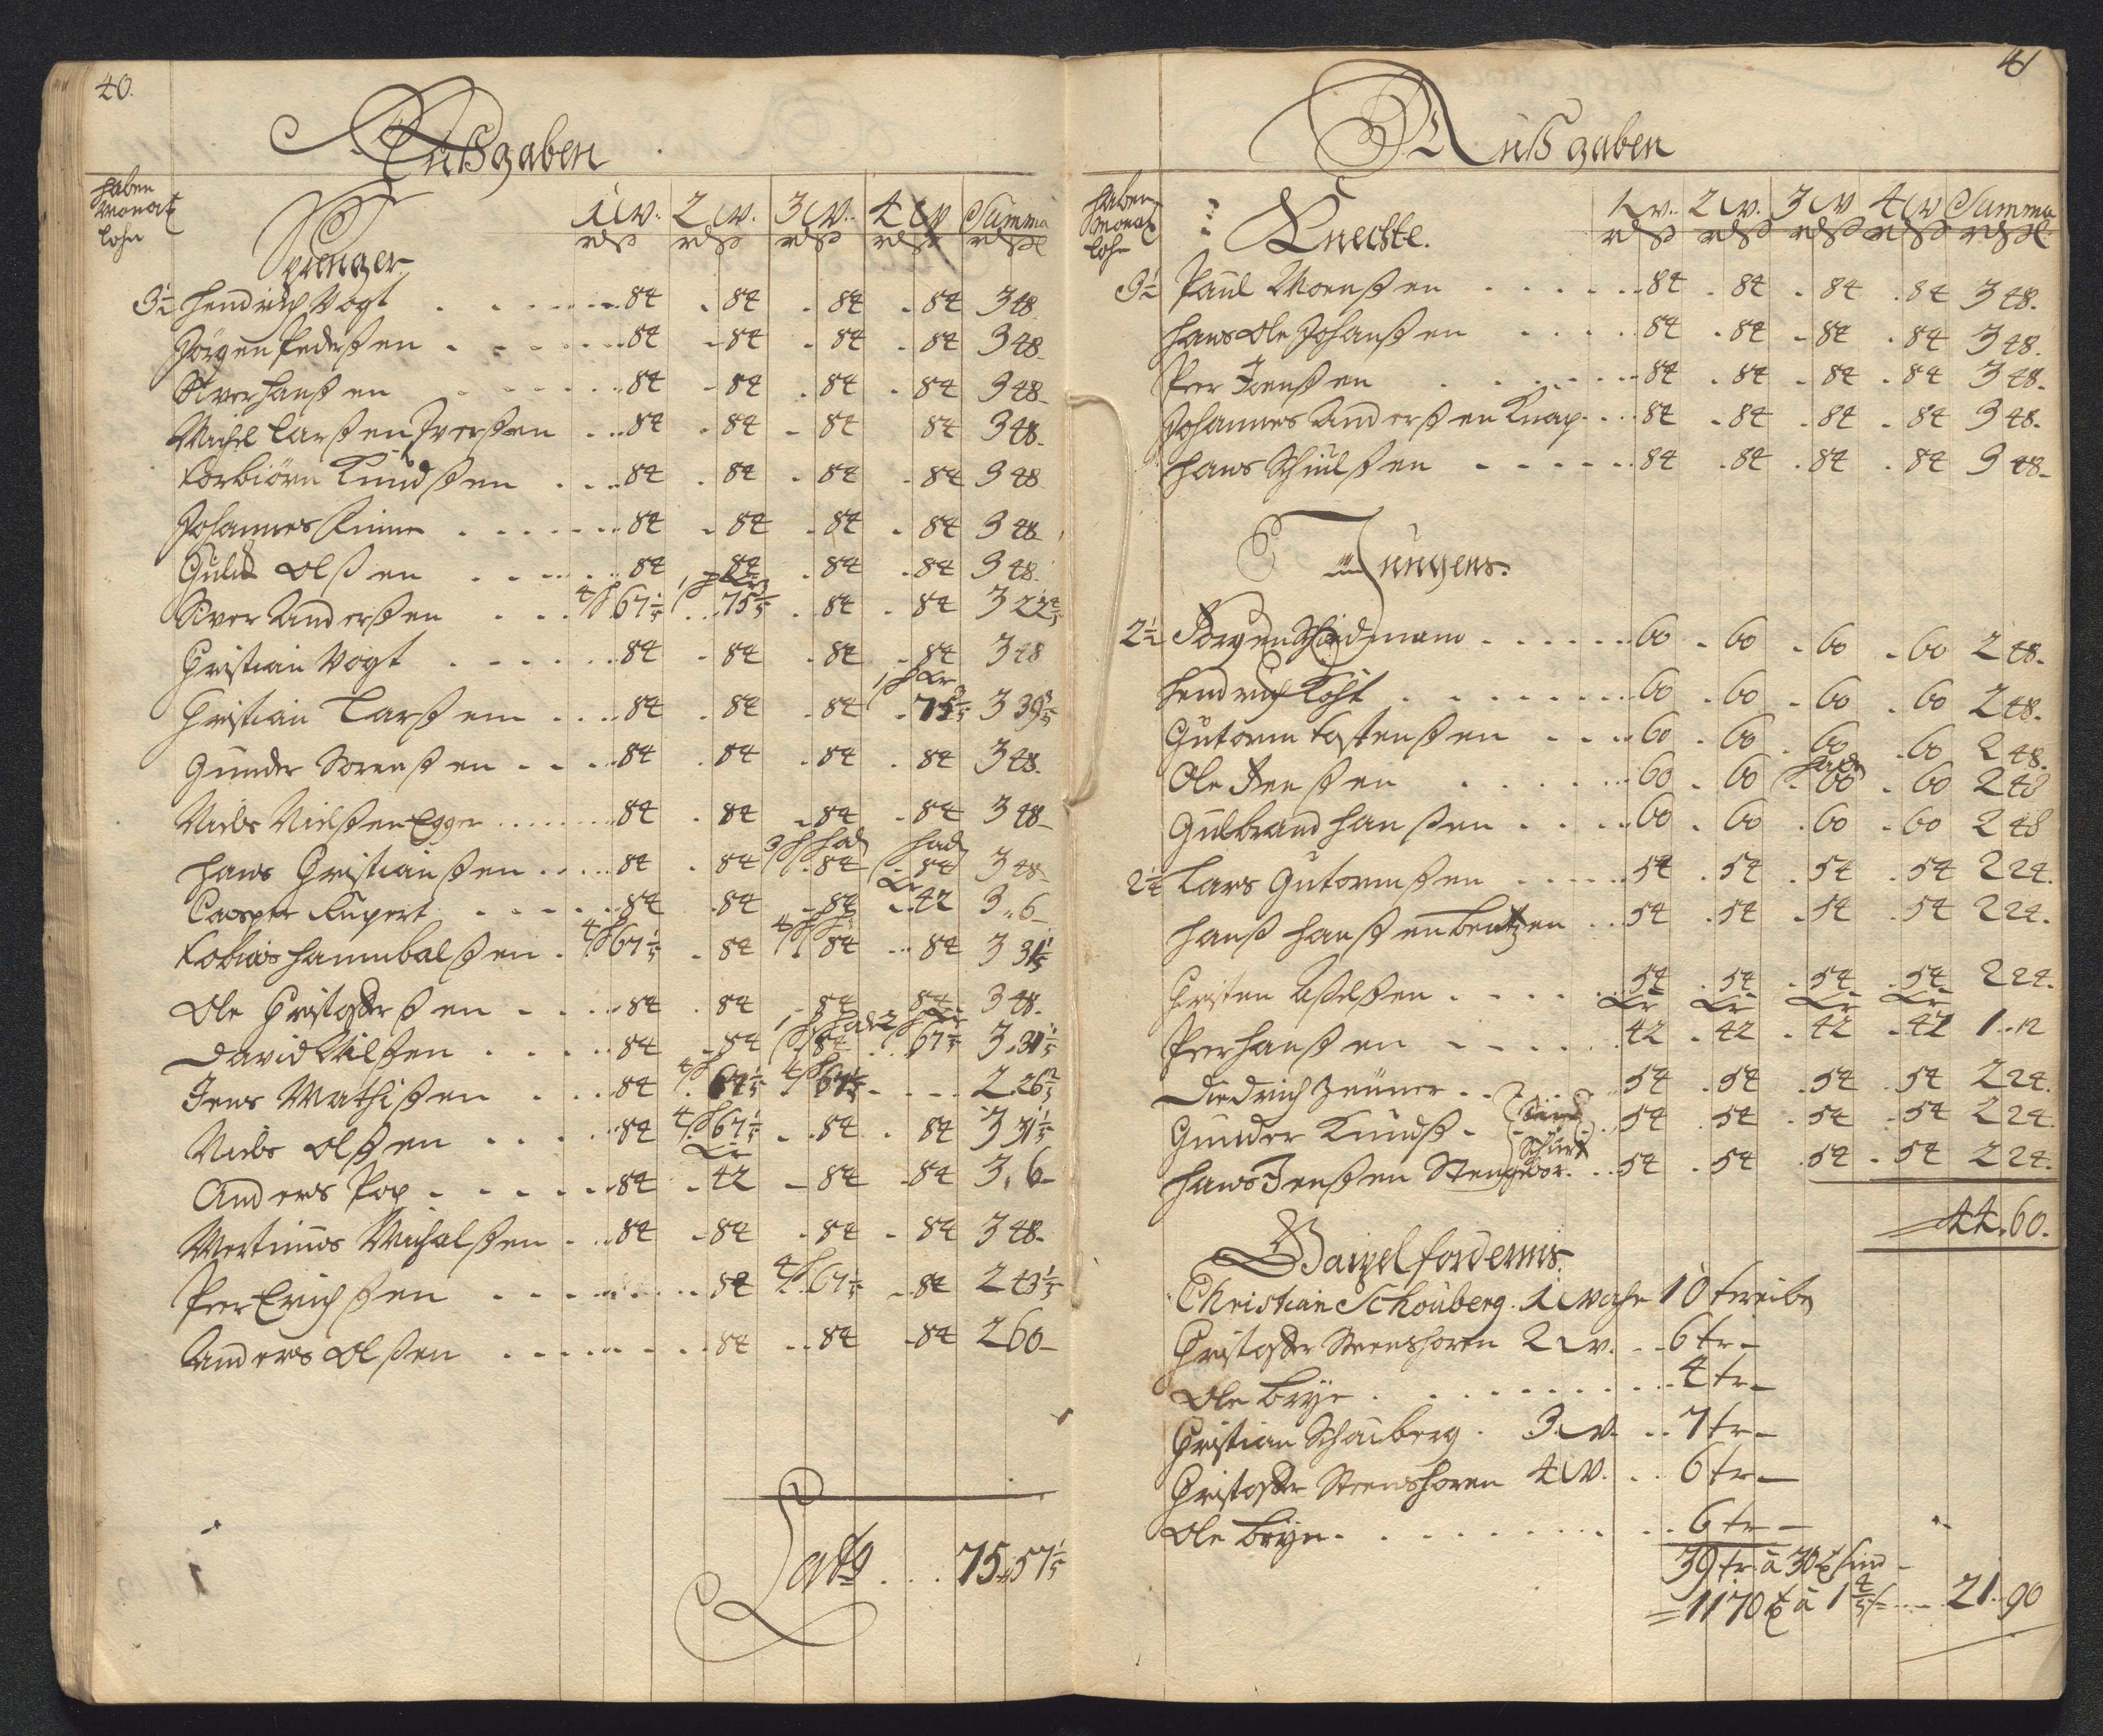 40.
Außgaben
haben Monat lohn
Sprenger
1 W. 2 W. 3 W. 4 W Summa
3½ Hendrich Vogt 84 84 84 84 3 48
Jörgen Pederßen 84 84 84 84 3 48
Siver Hanßen 84 84 84 84 3 48
Michel Larßen Iverßen 84 84 84 84 3 48
Torbiörn Knudßen 84 84 84 84 3 48
Johannes 84 84 84 84 3 48
Olßen 84 84 84 84 3 48
Siver Anderßen 67 1/5 75 3/5 84 84 3 22 4/5
Christian Vogt 84 84 84 84 3 48
Christian Larßen 84 84 84 75 3/5 3 39 3/5
Gunder Sorenßen 84 84 84 84 3 48
Niels Nielßen Egger 84 84 84 84 3 48
Hans Christianßen 84 84 84 84 3 48
Casper Rupert 84 84 84 42 3 6
Tobias Hannibalßen 67 1/5 84 84 84 3 31 1/5
Ole Christofferßen 84 84 84 84 3 48
David Nilßen 84 84 84 67 1/5 3 31 1/5
Jens Mathißen 84 67 1/5 67 1/5 2 26 2/5
Niels Olßen 84 67 1/5 84 84 3 31 1/5
Anders Pop 84 42 84 84 3 6
Mortinus Michalßen 84 84 84 84 3 48
Peer Erichßen 84 67 1/5 84 2 43 1/5
Anders Olßen 84 84 84 2 60
Latg 75 57 1/5
41
Außgaben
haben Monat lohn
Knechte.
1 W. 2 W. 3 W 4 W Summa
3½ Paul Monßen 84 84 84 84 3 48.
Hans Ole Johanßen 84 84 84 84 3 48.
Peer Jenßen 84 84 84 84 3 48.
Johannes Anderßen Knap 84 84 84 84 3 48.
Hans 84 84 84 84 3 48
Jungens.
2½ Jörgen 60 60 60 60 2 48.
Hendrich 60 60 60 60 2 48.
Gutorm Tostenßen 60 60 60 60 2 48.
Ole Jenßen 60 60 60 60 2 48
Gulbrand Hanßen 60 60 60 60 2 48
2¼ Lars Gutormßen 54 54 54 54 2 24.
Hanß Hanßen Bentzen 54 54 54 54 2 24.
Christen 54 54 54 54 2 24.
Peer Hanßen 42 42 42 42 1 72
Diedrich Zeuner 54 54 54 54 2 24.
Gunder Knudß 54 54 54 54 2 24.
Hans Jenßen 54 54 54 54 2 24.
44. 60.
Gaipel fordernis.
Christian Schouberg. 1 Woche 10 treiben
Christoffer Steenshoren 2 W. 6 tr
Ole Brye 4 tr
Christian Schauberg. 3 W. 7 tr
Christoffer Steenshoren 4 W. 6 tr
Ole Brye 6 tr
39 tr. à 30 t sind
1170 t à 1 4/5 ß 21 90